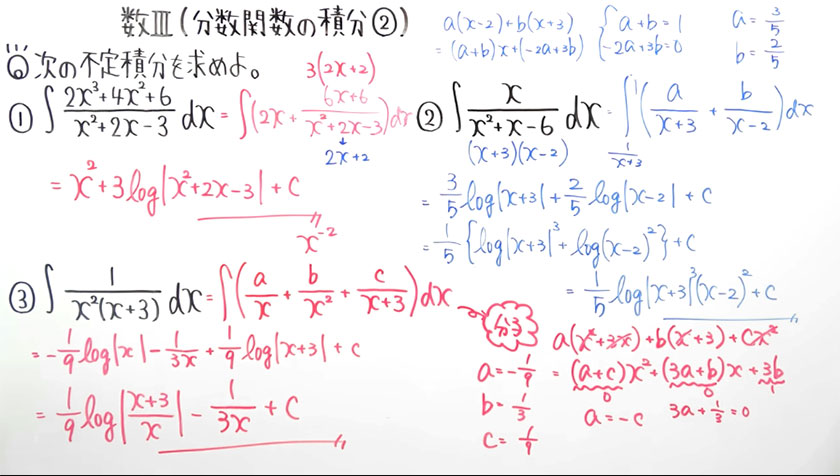 数Ⅲ(分数関数の積分②)
次の不定積分を求めよ。
① ∫ (2x³+4x²+6)/(x²+2x-3) dx = ∫(2x + (6x+6)/(x²+2x-3))dx
3(2x+2)
2x+2
= x²+3log|x²+2x-3|+C
x⁻²
② ∫ x/(x²+x-6) dx = ∫(a/(x+3) + b/(x-2))dx
(x+3)(x-2)
1/(x+3)
a(x-2)+b(x+3)
= (a+b)x+(-2a+3b)
{ a+b=1
-2a+3b=0
a=3/5
b=2/5
= 3/5 log|x+3|+2/5 log|x-2|+C
= 1/5 {log|x+3|³+log(x-2)²}+C
= 1/5 log|x+3|³(x-2)²+C
③ ∫ 1/(x²(x+3)) dx = ∫(a/x + b/x² + c/(x+3))dx
分子
= -1/9 log|x| - 1/3x + 1/9 log|x+3|+C
= 1/9 log|(x+3)/x| - 1/3x + C
a(x²+3x)+b(x+3)+cx²
= (a+c)x²+(3a+b)x+3b
0 0 1
a=-1/9
b=1/3
c=1/9
a=-c
3a+1/3=0